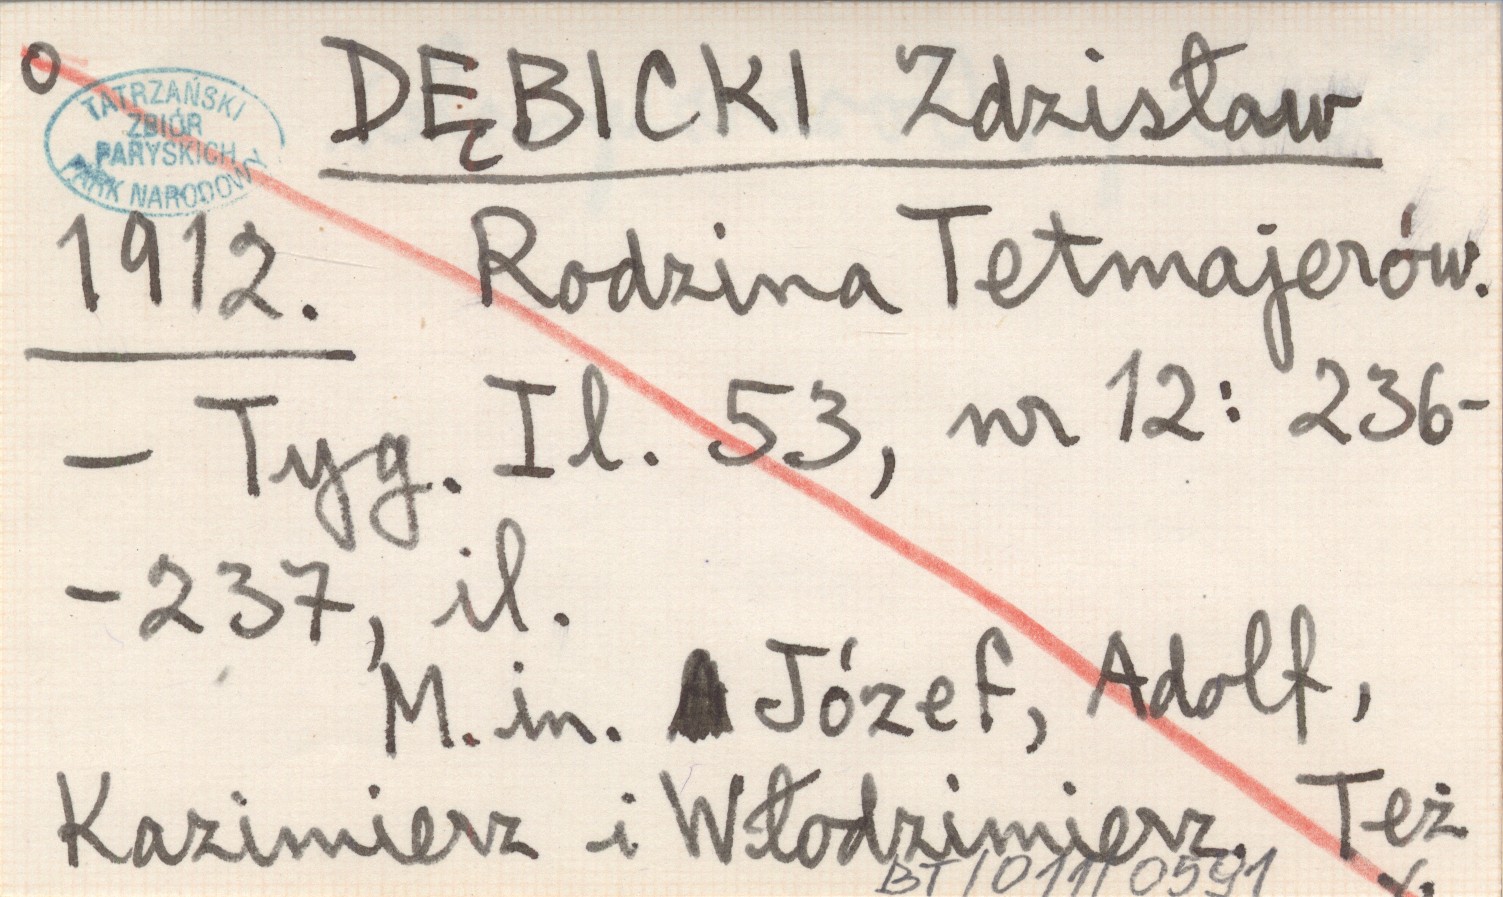 O
TATRZAŃSKI
ZBIÓR
PARYSKICH
PARK NARODOWY
DĘBICKI Zdzisław
1912. Rodzina Tetmajerów.
– Tyg. Il. 53, nr 12: 236-
-237, il.
M. in. Józef, Adolf,
Kazimierz i Włodzimierz. Też
BT/011/0591